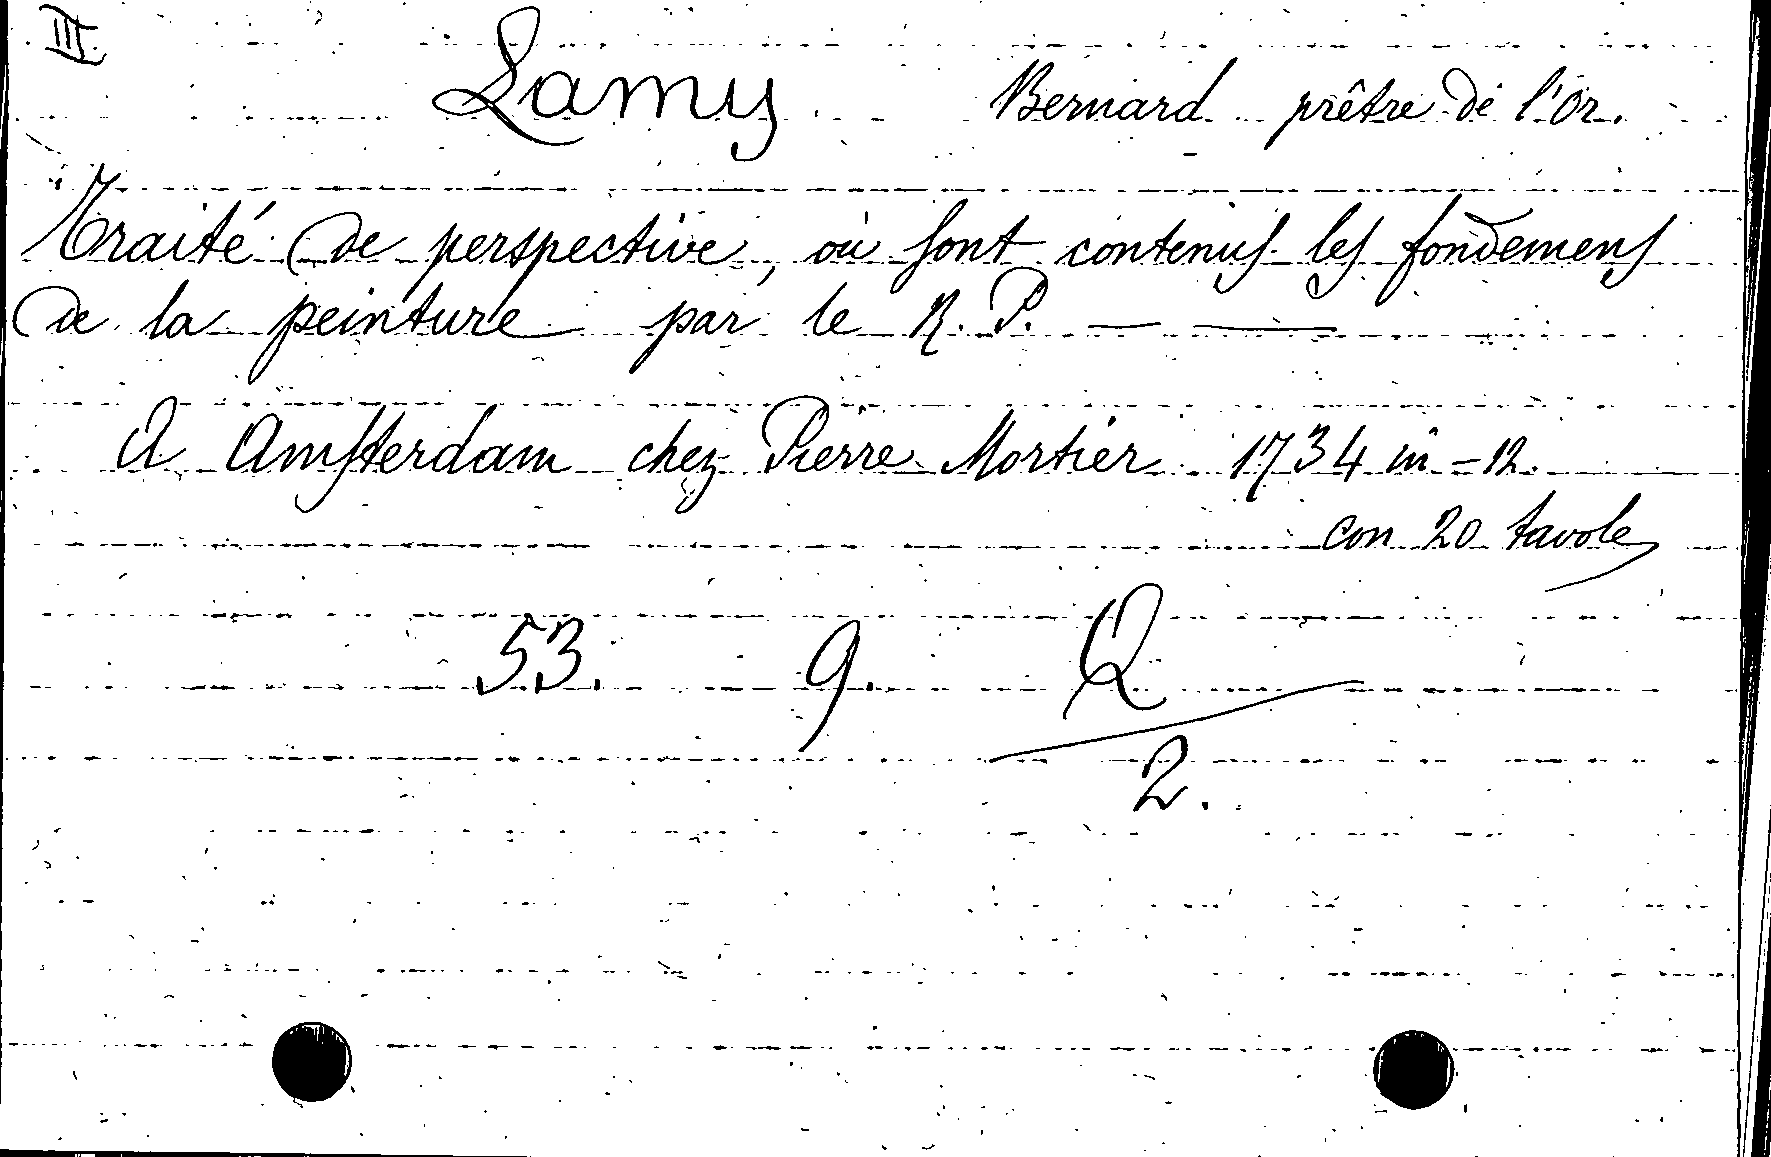 III.
Lamy Bernard prêtre de l'Or.
Traité de perspective, où sont contenus les fondemens
de la peinture par le R. P. — —
A Amsterdam chez Pierre Mortier 1734 in-12.
con 20 tavole
53. 9. Q
2.